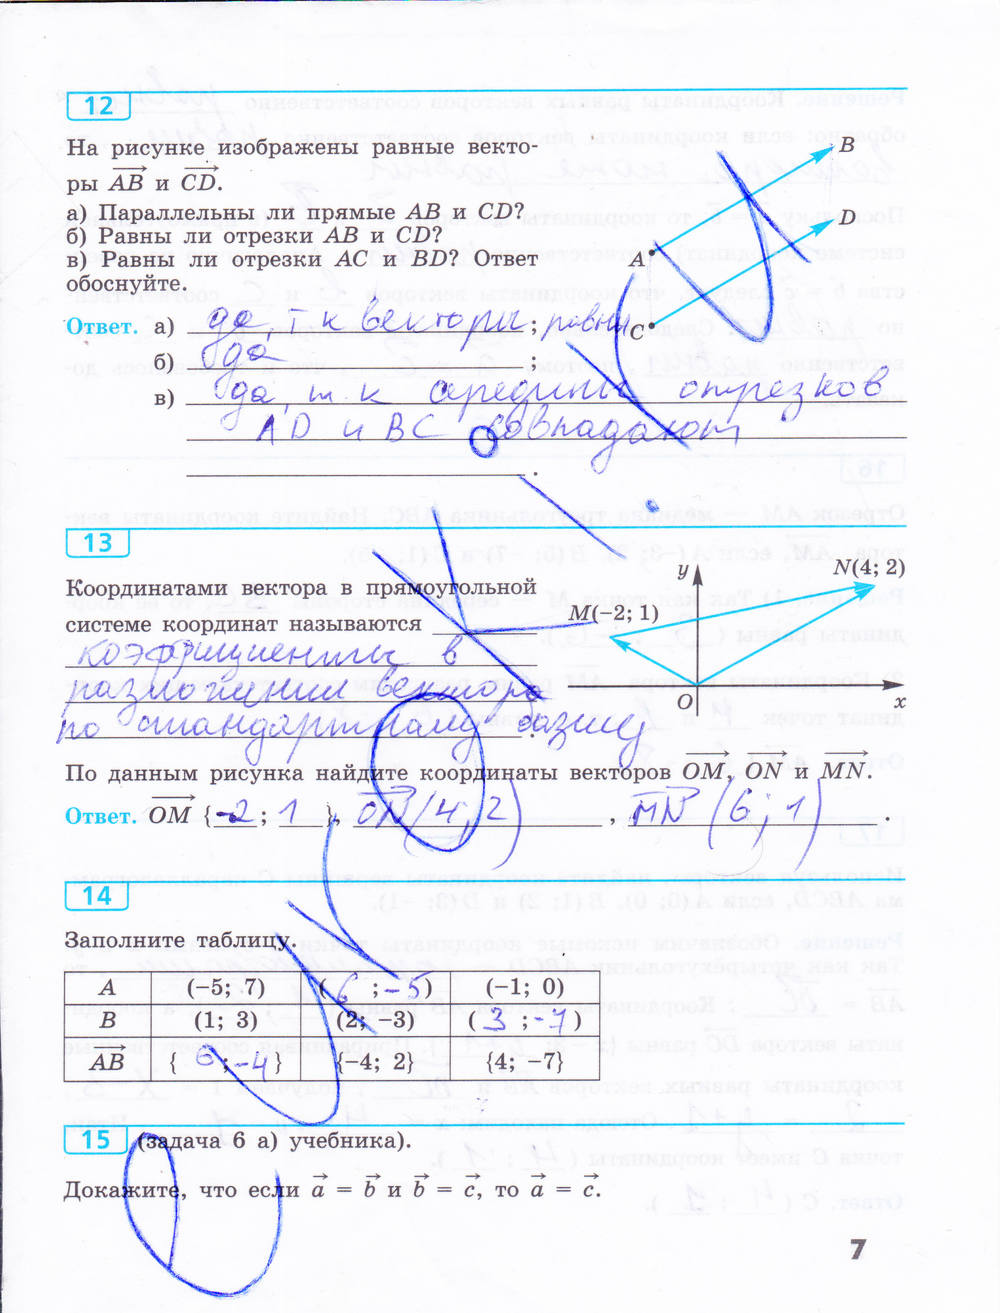 12
На рисунке изображены равные векто-
ры AB и CD.
а) Параллельны ли прямые AB и CD?
б) Равны ли отрезки AB и CD?
в) Равны ли отрезки AC и BD? Ответ
обоснуйте.
B
D
A
C
Ответ. а) да, т к векторы ; равны
б) да ;
в) да, т к середины отрезков
AD и BC совпадают
.
13
Координатами вектора в прямоугольной
системе координат называются
коэффициенты в
разложении вектора
по стандартному базису .
y
N(4; 2)
M(−2; 1)
O
x
По данным рисунка найдите координаты векторов OM, ON и MN.
Ответ. OM {-2; 1}, ON (4; 2), MN (6; 1).
14
Заполните таблицу.
A (−5; 7) (6; -5) (−1; 0)
B (1; 3) (2; −3) (3; -7)
AB {6; -4} {−4; 2} {4; −7}
15 (задача 6 а) учебника).
Докажите, что если a = b и b = c, то a = c.
7